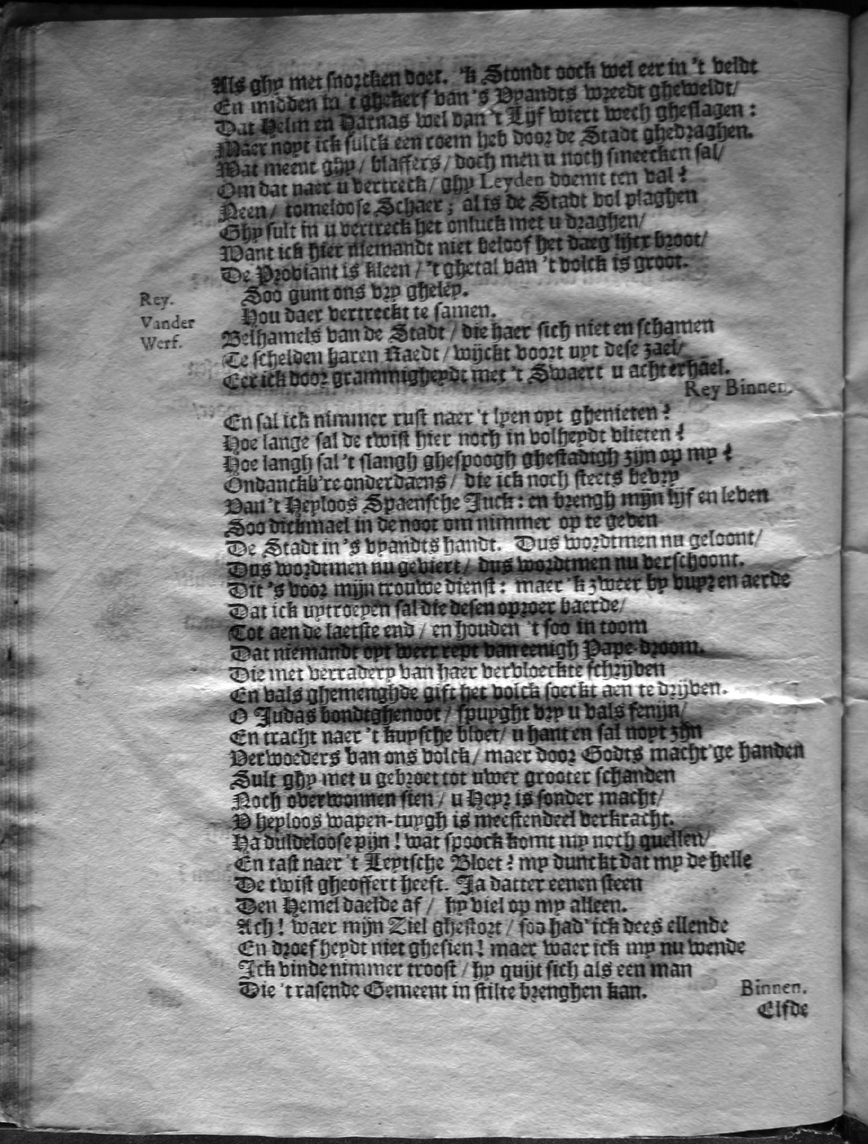 Als ghy met snorcken doet. 'k Stondt oock wel eer in 't veldt
En midden in 't ghekerf van 's Vyandts wreedt gheweldt/
Dat Helm en Harnas wel van 't Lijf wiert wech gheslagen:
Maer noyt ick sulck een roem heb door de Stadt ghedraghen.
Wat meent ghy/ blaffers/ doch men u noch smeecken sal/
Om dat naer u vertreck/ ghy Leyden doemt ten val?
Neen/ tomeloose Schaer; al is de Stadt vol plaghen
Ghy sult in u vertreck het onluck met u draghen/
Want ick hier niemandt niet beloof het daeg lijcx broot/
De Proviant is kleen/ 't ghetal van 't volck is groot.
Rey. Soo gunt ons vry gheley.
Vander Werf. Hou daer vertreckt te samen.
Belhamels van de Stadt/ die haer sich niet en schamen
Te schelden haren Raedt/ wijckt voort uyt dese zael/
Eer ick door grammigheydt met 't Swaert u achterhael.
Rey Binnen.
En sal ick nimmer rust naer 't lyen oyt ghenieten?
Hoe lange sal de twist hier noch in volheydt vlieten?
Hoe langh sal 't slangh ghespoogh ghestadigh zijn op my?
Ondanckb're onderdaens/ die ick noch steets bevry
Van 't Heyloos Spaensche Juck: en brengh mijn lijf en leven
Soo dickmael in de noot om nimmer op te geven
De Stadt in 's vyandts handt. Dus wordtmen nu geloont/
Dus wordtmen nu geviert/ dus wordtmen nu verschoont.
Dit 's voor mijn trouwe dienst: maer 'k zweer by vuyr en aerde
Dat ick uytroeyen sal die desen oproer baerde/
Tot aen de laetste end/ en houden 't soo in toom
Dat niemandt oyt weer rept van eenigh Pape-droom.
Die met verradery van haer vervloeckte schrijven
En vals ghemenghde gift het volck soeckt aen te drijven.
O Judas bondtghenoot/ spuyght vry u vals fenijn/
En tracht naer 't kuysche bloet/ u hant en sal noyt zijn
Verwoeders van ons volck/ maer door Godts macht'ge handen
Sult ghy met u gebroet tot uwer grooter schanden
Noch overwonnen sien/ u Heyr is sonder macht/
V heyloos wapen-tuygh is meestendeel verkracht.
Ha duldeloose pijn! wat spoock komt my noch quellen/
En tast naer 't Leytsche Bloet? my dunckt dat my de helle
De twist gheoffert heeft. Ja datter eenen steen
Den Hemel daelde af/ hy viel op my alleen.
Ach! waer mijn Ziel ghestort/ soo had' ick dees ellende
En droefheydt niet ghesien! maer waer ick my nu wende
Ick vinde nimmer troost/ hy quijt sich als een man
Die 't rasende Gemeent in stilte brenghen kan.
Binnen.
Elfde